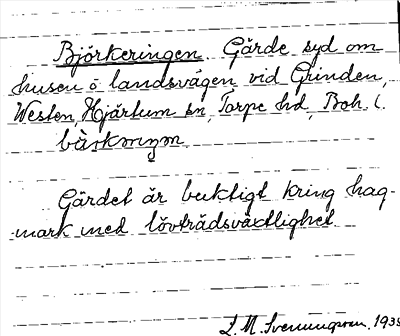 Björkeringen Gärde syd om
husen o landsvägen vid Grinden,
Westen, Hjärtum sn, Torpe hd, Boh. l.
Gärdet är buktigt kring hag-
mark med lövträdsväxtlighet
L. M. Svenungsson. 1938